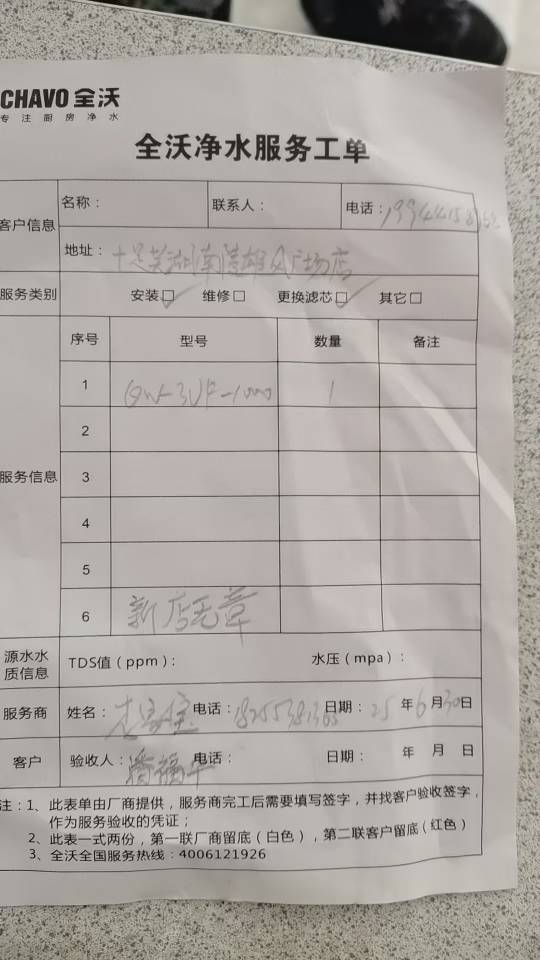 CHAVO 全沃
专注厨房净水
全沃净水服务工单
客户信息
名称： 联系人： 电话：
地址：十足芜湖南陵 广场店
服务类别 安装☑ 维修□ 更换滤芯☑ 其它□
服务信息
序号 型号 数量 备注
1 QW-3UF-1000 1
2
3
4
5
6 新店无章
源水水质信息 TDS值（ppm）： 水压（mpa）：
服务商 姓名： 电话： 日期：25 年 6 月 30 日
客户 验收人： 电话： 日期： 年 月 日
注：1、此表单由厂商提供，服务商完工后需要填写签字，并找客户验收签字，
作为服务验收的凭证；
2、此表一式两份，第一联厂商留底（白色），第二联客户留底（红色）
3、全沃全国服务热线：4006121926